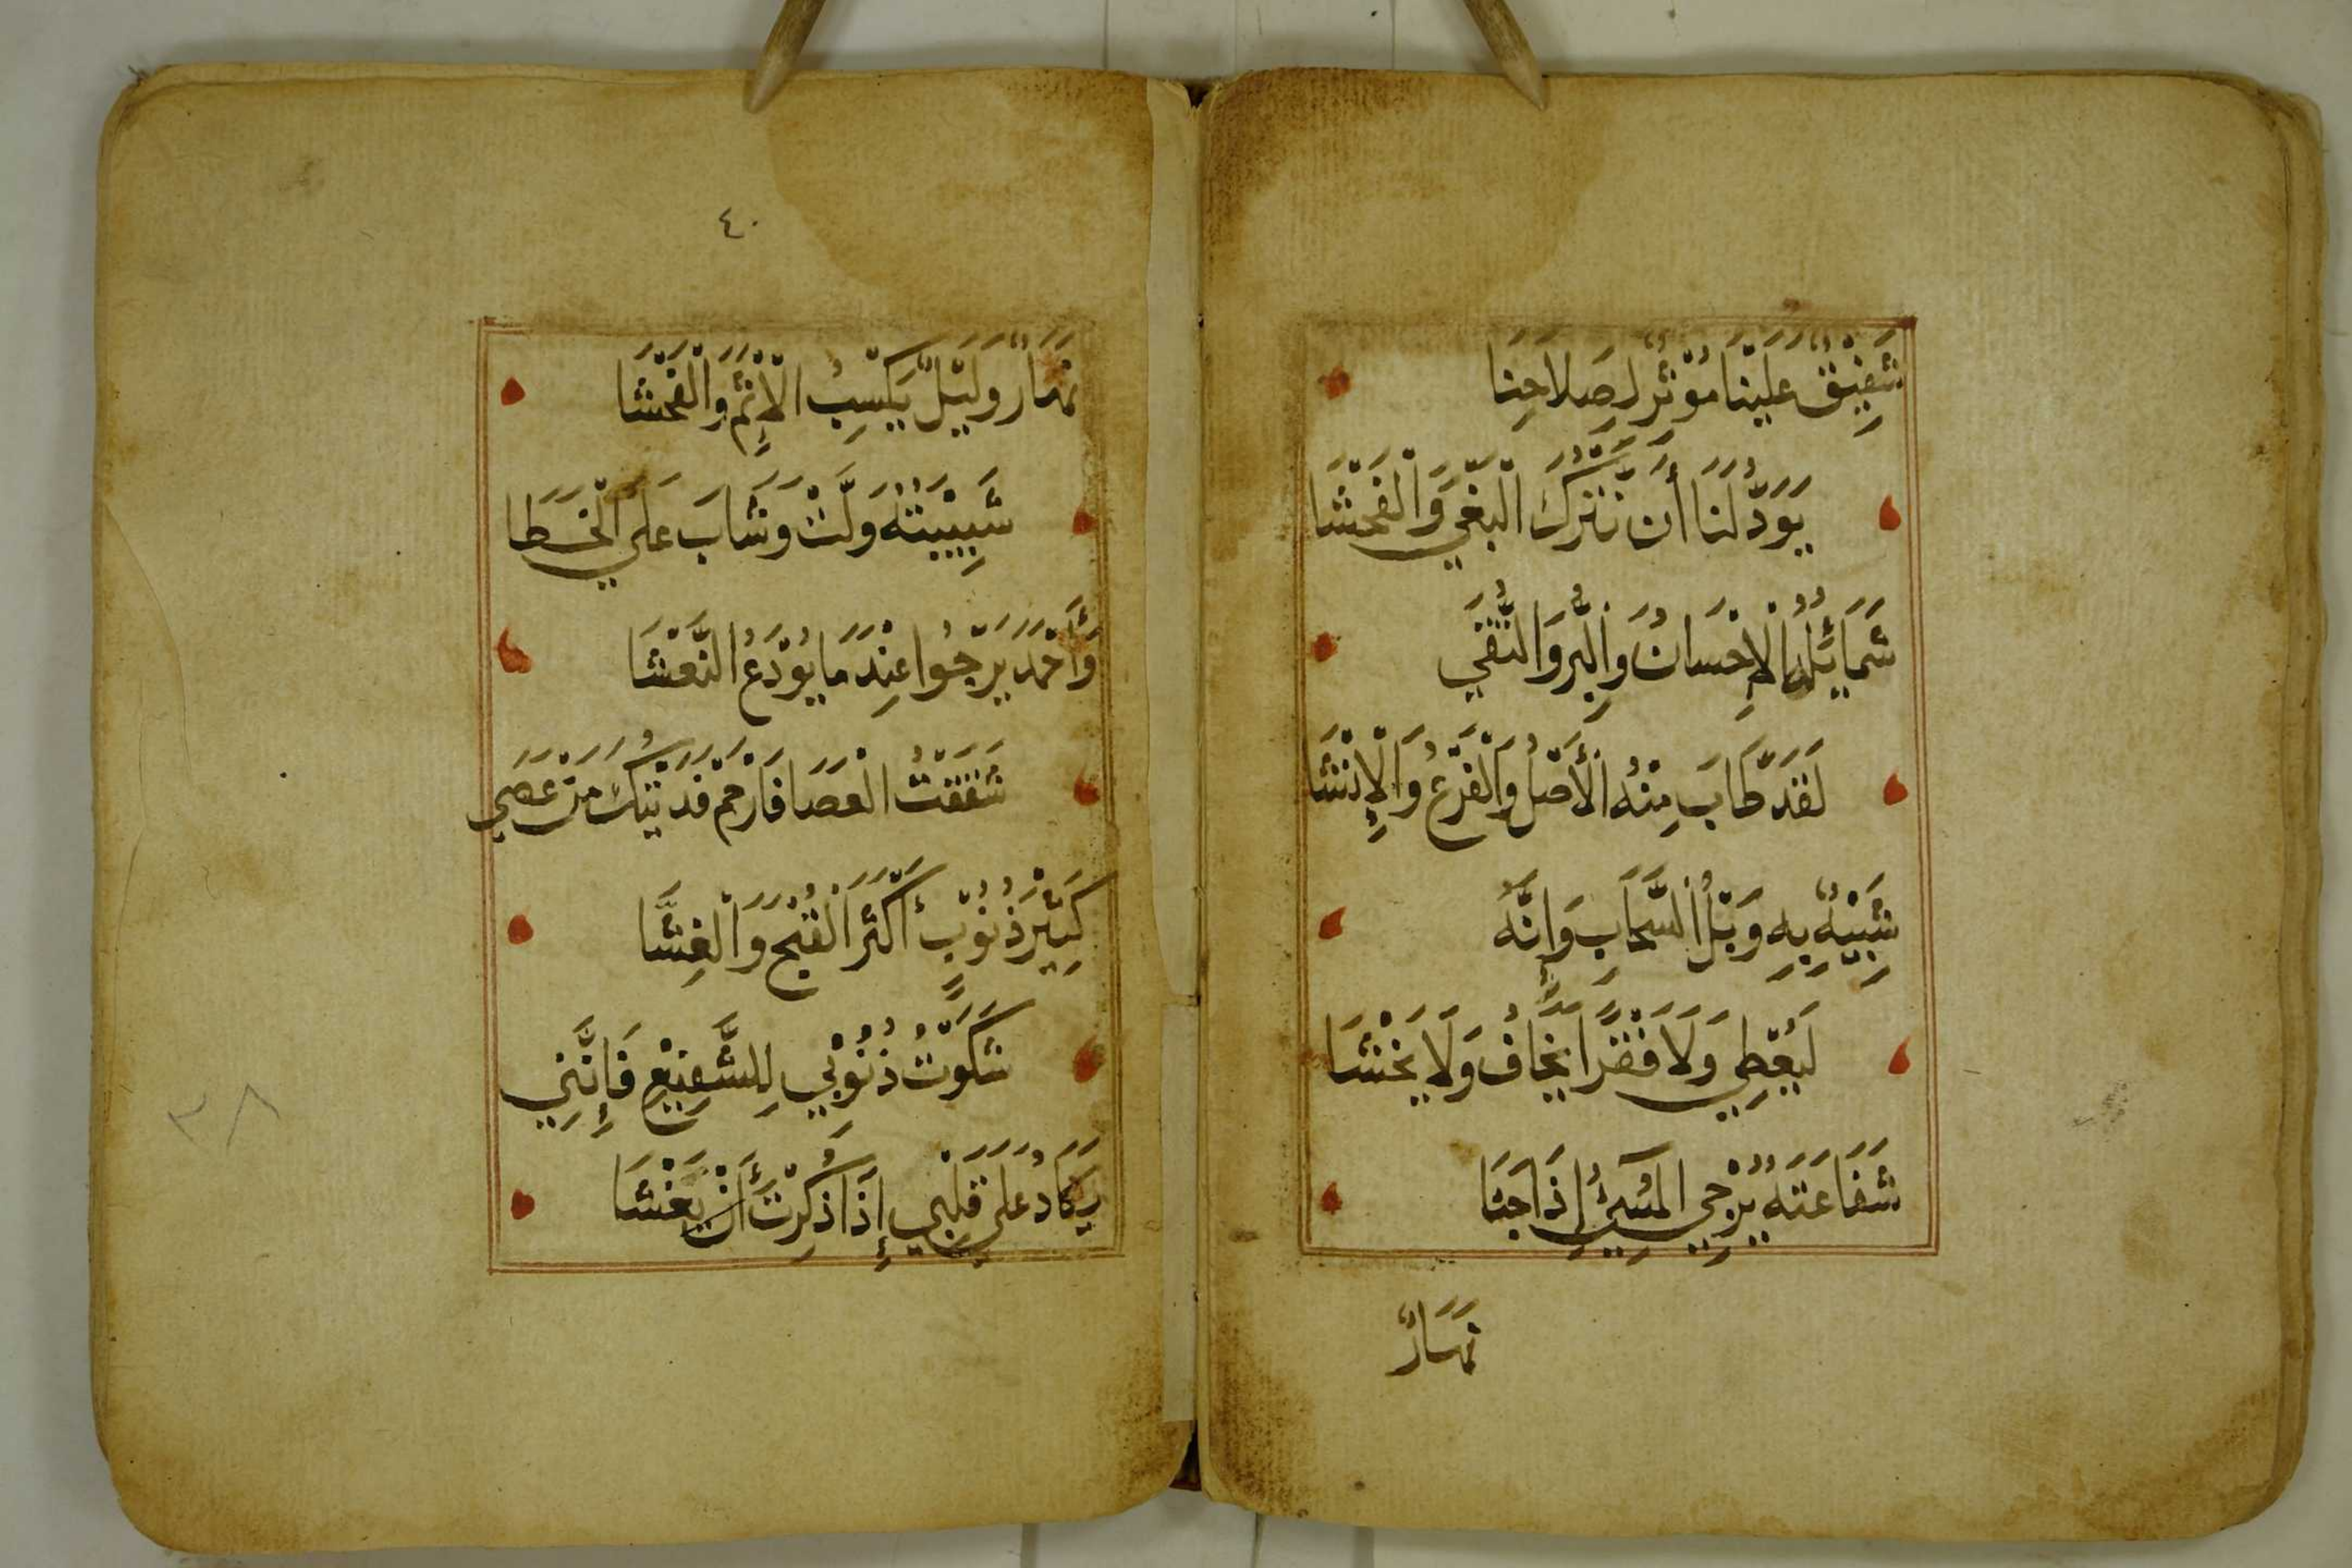 شَفِيْقٌ عَلَيْنَا مُوْثِرٌ لِصَلَاحِنَا
يَوَدُّ لَنَا أَن نَتْرُكَ الْبَغْيَ وَالْفَحْشَا
شَمَائِلُهُ الْإِحْسَانُ وَالْبِرُّ وَالتُّقَي
لَقَدْ طَابَ مِنْهُ الْأَصْلُ وَالْفَرْعُ وَالْإِنْشَا
شَبِيْهٌ بِهِ وَبْلُ السَّحَابِ وَانَّهُ
لَيُعْطِي وَلَا فَقْرًا يَخَافُ وَلَا يَخْشَا
شَفَاعَتَهُ يُرْجِي الْمُسِيْئُ إِذَا جَنَا
نَهَارٌ
٤٠
نَهَارٌ وَلَيْلٌ يَكْسِبُ الْإِثْمَ وَالْفَحْشَا
شَبِيْبَتُهُ وَلَّتْ وَشَابَ عَلَي الْخَطَا
وَأَحْمَدَ يَرْجُوا عِنْدَ مَا يُوْدَعُ النَّعْشَا
شَقَقْتُ الْعَصَا فَارْحَمْ فَدَيْتُكَ مَنْ عَصَي
كَثِيْرَ ذُنُوْبٍ أَكْثَرَ الْقُبْحَ وَالْغِشَّا
شَكَوْتُ ذُنُوْبِي لِلشَّفِيْعِ فَإِنَّنِي
يَكَادُ عَلَي قَلْبِي إِذَا ذُكِرْتَ أَنْ يَغْشَا
٣٨